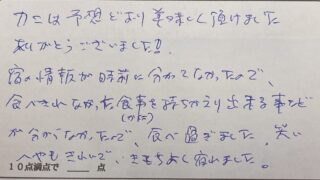 カニは予想どおり美味しく頂けました
ありがとうございました!!
宿の情報が時前に分かてなかったので、
食べきれなかった食事を持ちかえり出来る事など
(かに)
が分からなかったので、食べ過ぎました 笑い
へやもきれいで、きもちよく宿れました。
10点満点で ___ 点